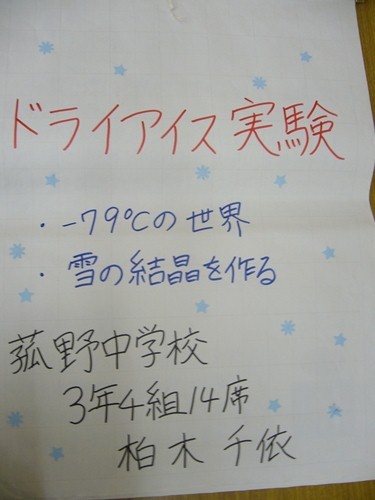 ドライアイス実験
・-79℃の世界
・雪の結晶を作る
菰野中学校
3年4組14席
柏木千依